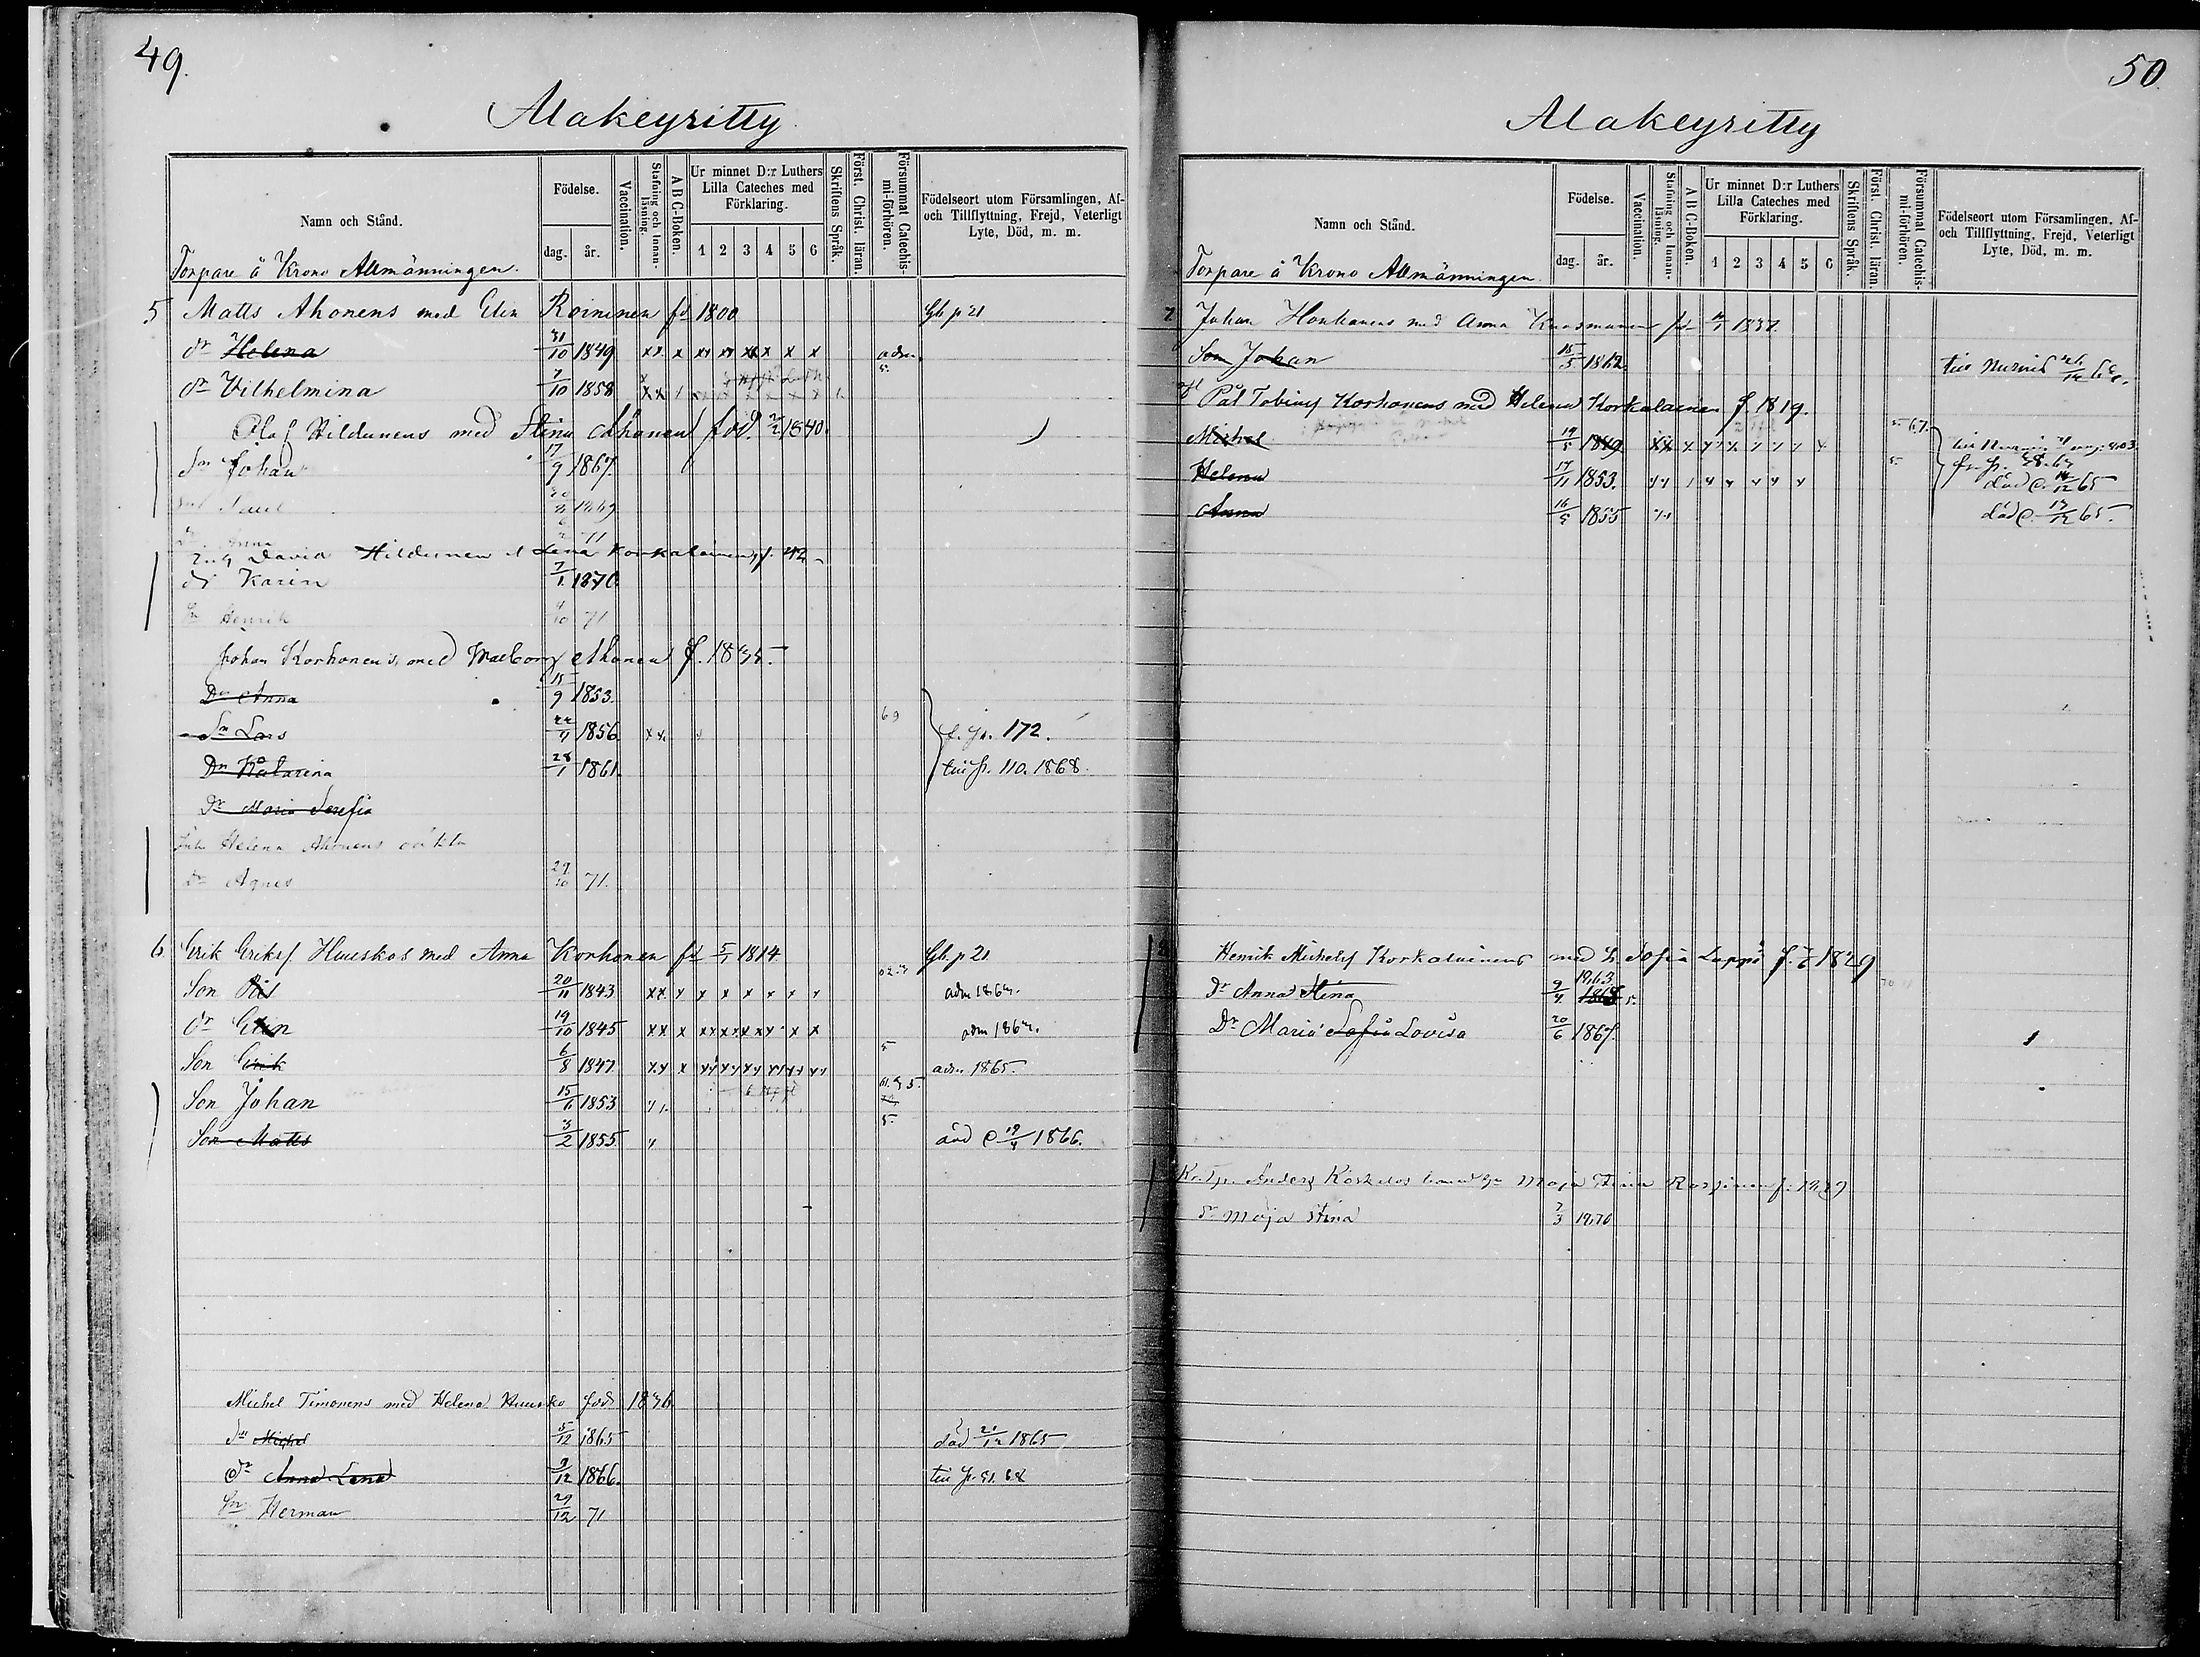 49.
Alakeyritty
Namn och Stånd.
Födelse.
dag. år.
Vaccination.
Stafning och Innanläsning.
A B C-Boken.
Ur minnet D:r Luthers Lilla Cateches med Förklaring.
1 2 3 4 5 6
Skriftens Språk.
Först. Christ. läran.
Försummat Catechismi-förhören.
Födelseort utom Församlingen, Af- och Tillflyttning, Frejd, Veterligt Lyte, Död, m. m.
Torpare å Krono Allmänningen.
5 Matts Ahonens med Elin Roininen fd 1800 Gb. p 21
dr Helena 31/10 1849 xx x xx xx xx x x x adm.
dr Vilhelmina 7/10 1858 xx
Olof Hildunens med Stina Ahonen född 2/2 1840.
Sn Johan 17/9 1867.
Paul 1869
Anna 71
David Hildunen d Lena Korkalainen f. 42
dr Karin 7/1 1870
Sn Henrik 4/10 71
Johan Korhonens med Walborg Ahonen f. 1835.
Dr Anna 15/9 1853.
Sn Lars 22/11 1856. xx 69 f. p. 172.
Dr Katarina 28/1 1861. till p. 110. 1868.
Dr Maria Serefia
Helena Ahonens oäkta
dr Agnes 29/10 71.
6 Erik Eriksf Huuskos med Anna Korhonen fd 5/1 1814 Gb. p 21
Son Pål 20/11 1843 xx x x x x x x x adm 1864.
dr Elin 19/10 1845 xx x xx xx xx x x adm 1864.
Son Erik 6/8 1847 xx x xx xx xx xx xx xx 5 adm. 1865.
Son Johan 15/6 1853
Son Matts 3/2 1855 5. död d. 19/4 1866.
Michel Timonens med Helena Huusko född 1836
Sn Michel 5/12 1865 död 21/12 1865
dr Anna Lena 9/12 1866. till p. 91. 68
Sn Herman 29/12 71
50
Alakeyritty
Namn och Stånd.
Födelse.
dag. år.
Vaccination.
Stafning och Innanläsning.
A B C-Boken.
Ur minnet D:r Luthers Lilla Cateches med Förklaring.
1 2 3 4 5 6
Skriftens Språk.
Först. Christ. läran.
Försummat Catechismi-förhören.
Födelseort utom Församlingen, Af- och Tillflyttning, Frejd, Veterligt Lyte, Död, m. m.
Torpare å Krono Allmänningen.
7 Johan Honkanens med Anna Kuosmanen
Son Johan 15/5 1862. till Nurmis
Pål Tobiasf Korhonens med Helena Korkalainen f. 1819.
Michel 19/5 1849 xx x x x x x x x
Helena 17/11 1853. död d. 14/12 65
Anna 16/5 1855 död d. 17/12 65.
Henrik Michelsf Korkalainens med h. Sofia Lappi f. 1829
Dr Anna Stina 9/4 1863
Dr Maria Sofia Lovisa 20/6 1867.
Anders Koskelos Maja Stina f.
dr Maja Stina 7/3 1870